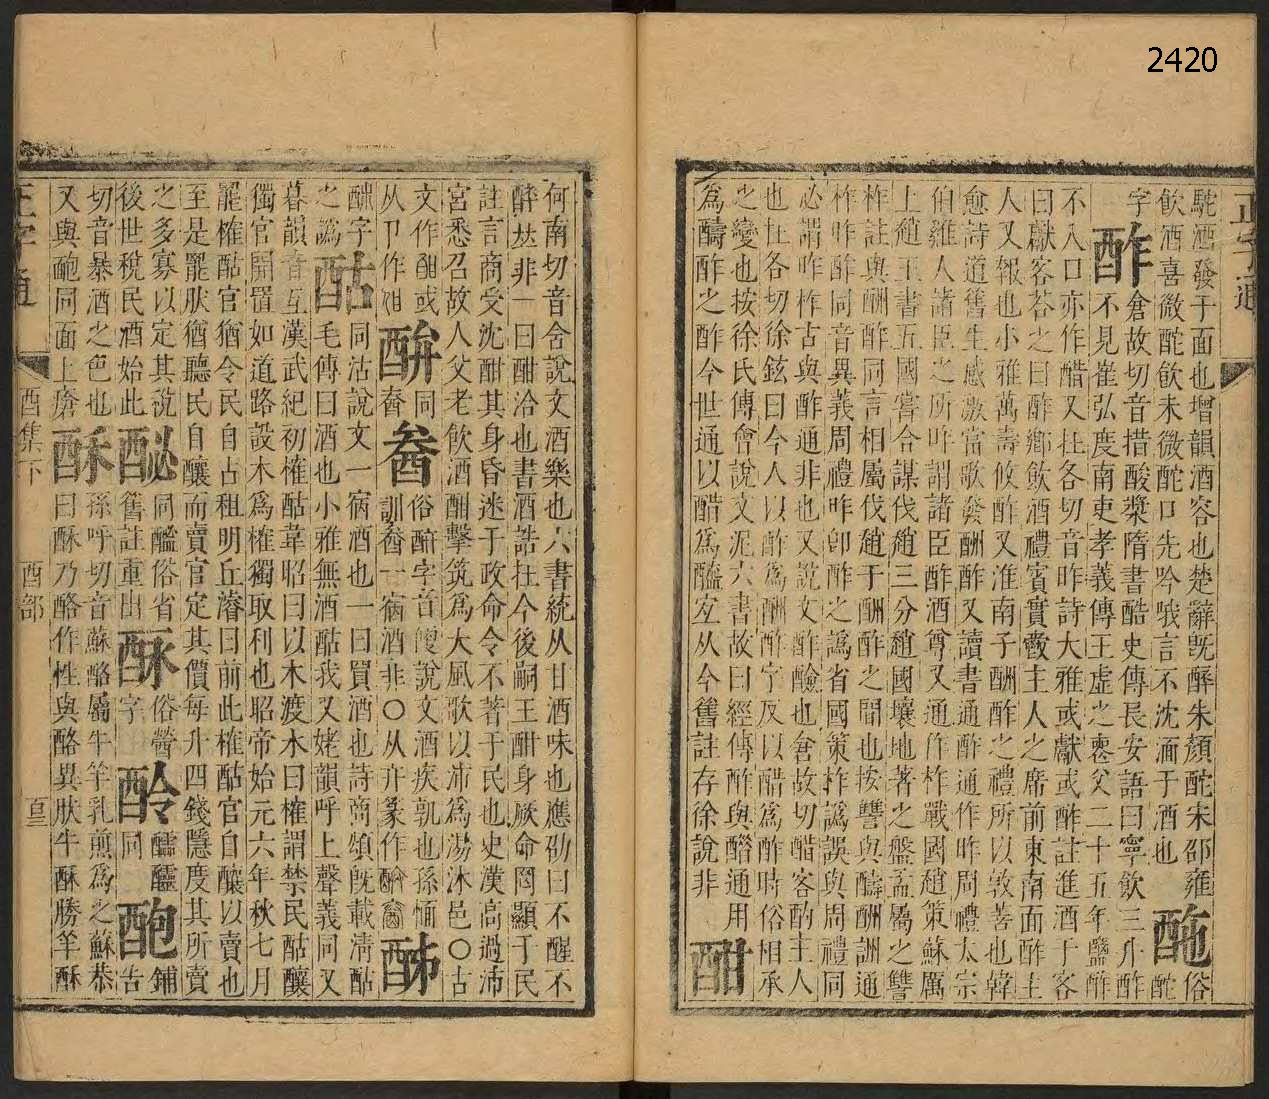 2420
正字通
駝酒發于面也增韻酒容也楚辭旣醉朱顏酡宋邵雍
飲酒喜微酡飮未微酡口先吟哦言不沈湎于酒也 酏 俗酡
字 酢 倉故切音措酸漿隋書酷史傳長安語曰寧飲三升酢
不見崔弘度南史孝義傳王虛之喪父二十五年鹽酢
不入口亦作醋又在各切音昨詩大雅或獻或酢註進酒于客
曰獻客荅之曰酢鄉飮酒禮賓實觶主人之席前東南面酢主
人又報也小雅萬壽攸酢又淮南子酬酢之禮所以敦善也韓
愈詩道舊生感激當歌發酬酢又讀書通酢通作昨周禮太宗
伯雞人諸臣之所昨謂諸臣酢酒尊又通作柞戰國趙策蘇厲
上趙王書五國嘗合謀伐趙三分趙國壤地著之盤盂屬之讐
柞註與酬酢同言相屬伐趙于酬酢之閒也按讐與醻酬詶通
柞昨酢同音異義周禮昨卽酢之譌省國策柞譌誤與周禮同
必謂昨柞古與酢通非也又說文酢醶也倉故切醋客酌主人
也在各切徐鉉曰今人以酢爲酬酢字反以醋爲酢時俗相承
之變也按徐氏傅會說文泥六書故曰經傳酢與醋通用
爲醻酢之酢今世通以醋爲醯宐从今舊註存徐說非 酣
何南切音含說文酒樂也六書統从甘酒味也應劭曰不醒不
醉𠀤非一曰酣洽也書酒誥在今後嗣王酣身厥命罔顯于民
註言商受沈酣其身昏迷于政命令不著于民也史漢高過沛
宮悉召故人父老飲酒酣擊筑爲大風歌以沛爲湯沐邑〇古
文作 或从卩作 𨠟 同 俗 字音 說文酒疾孰也孫愐
訓 一宿酒非〇从弁篆作 䣺
醚字之譌 酤 同沽說文一宿酒也一曰買酒也詩商頌旣載清酤
毛傳曰酒也小雅無酒酤我又姥韻呼上聲義同又
暮韻音互漢武紀初榷酤韋昭曰以木渡水曰榷謂禁民酤釀
獨官開置如道路設木爲榷獨取利也昭帝始元六年秋七月
罷榷酤官猶令民自占租明丘濬曰前此榷酤官自釀以賣也
至是罷肰猶聽民自釀而賣官定其價每升四錢隱度其所賣
之多寡以定其稅
後世稅民酒始此 䤉 同醯俗省舊註重出 俗 字 醽 同 䣿 鋪告
切音暴酒之色也
又與皰同面上瘡 酥 孫呼切音蘇酪屬牛羊乳煎爲之蘇恭
曰酥乃酪作性與酪異肰牛酥勝羊酥
正字通
酉集下
酉部